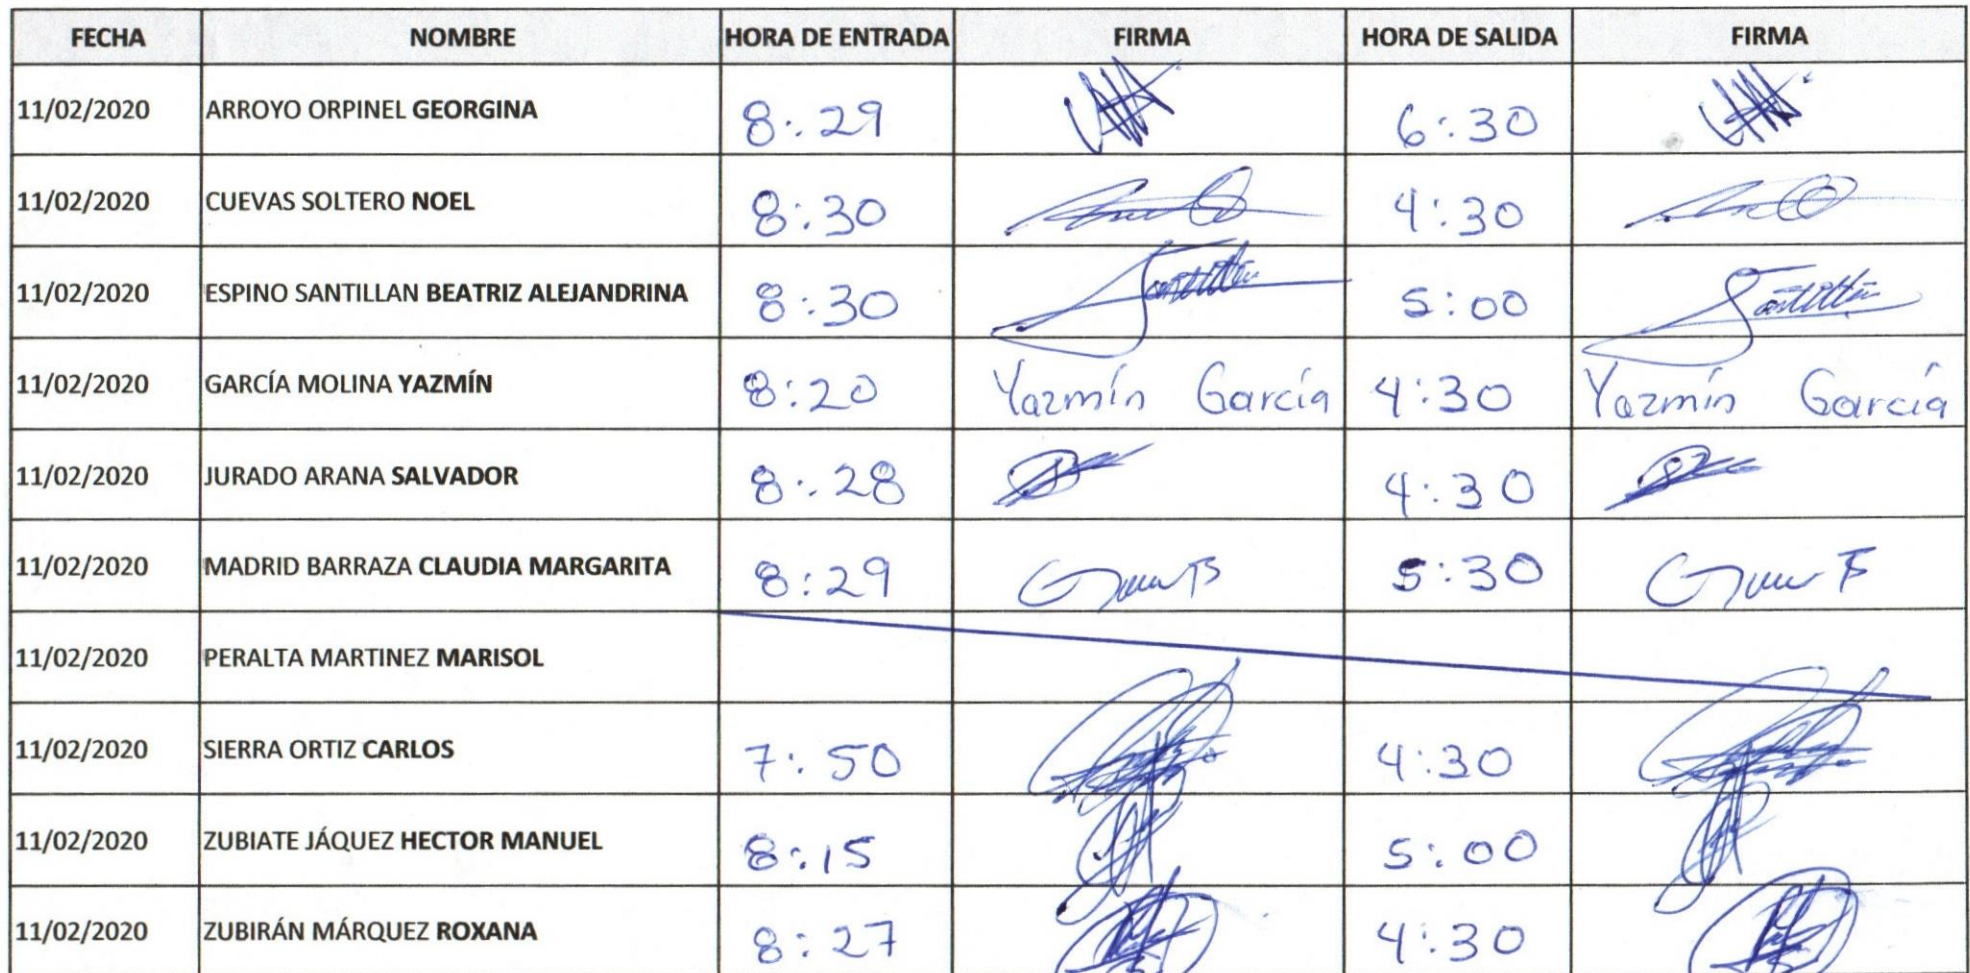 FECHA NOMBRE HORA DE ENTRADA FIRMA HORA DE SALIDA FIRMA
11/02/2020 ARROYO ORPINEL GEORGINA 8:29 6:30
11/02/2020 CUEVAS SOLTERO NOEL 8:30 4:30
11/02/2020 ESPINO SANTILLAN BEATRIZ ALEJANDRINA 8:30 Santillán 5:00 Santillán
11/02/2020 GARCÍA MOLINA YAZMÍN 8:20 Yazmín García 4:30 Yazmín García
11/02/2020 JURADO ARANA SALVADOR 8:28 4:30
11/02/2020 MADRID BARRAZA CLAUDIA MARGARITA 8:29 5:30
11/02/2020 PERALTA MARTINEZ MARISOL
11/02/2020 SIERRA ORTIZ CARLOS 7:50 4:30
11/02/2020 ZUBIATE JÁQUEZ HECTOR MANUEL 8:15 5:00
11/02/2020 ZUBIRÁN MÁRQUEZ ROXANA 8:27 4:30